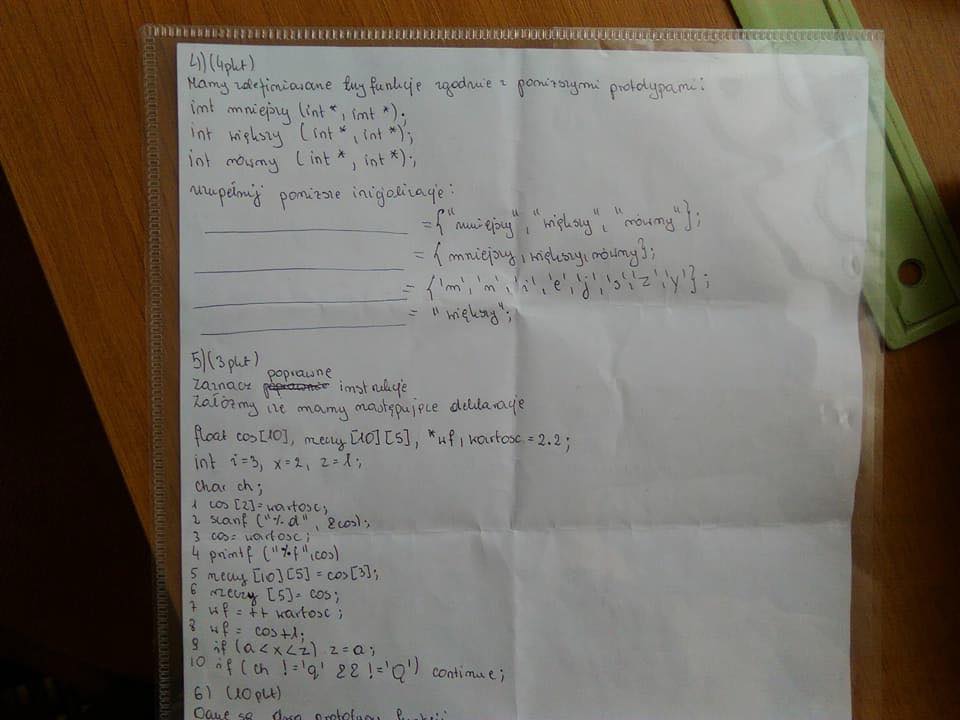 4) (4pkt)
Mamy zdefiniowane trzy funkcje zgodnie z poniższymi prototypami:
int mniejszy (int *, int *);
int większy (int *, int *);
int równy (int *, int *);
uzupełnij poniższe inicjalizacje:
= {"mniejszy", "większy", "równy"};
= {mniejszy, większy, równy};
= {'m', 'n', 'i', 'e', 'j', 's', 'z', 'y'};
= "większy";
5) (3pkt)
poprawne
Zaznacz instrukcje
Załóżmy że mamy następujące deklaracje
float cos[10], rzeczy [10][5], *wf, wartosc = 2.2;
int i=3, x=2, z=1;
char ch;
1 cos [2]=wartosc;
2 scanf ("%d", &cos);
3 cos= wartosc;
4 printf ("%f", cos)
5 rzeczy [10][5] = cos[3];
6 rzeczy [5]= cos;
7 wf = ++ wartosc;
8 wf = cos+1;
9 if (a<x<z) z=a;
10 if (ch !='q' && !='Q') continue;
6) (10pkt)
Dane są dwa prototypy funkcji